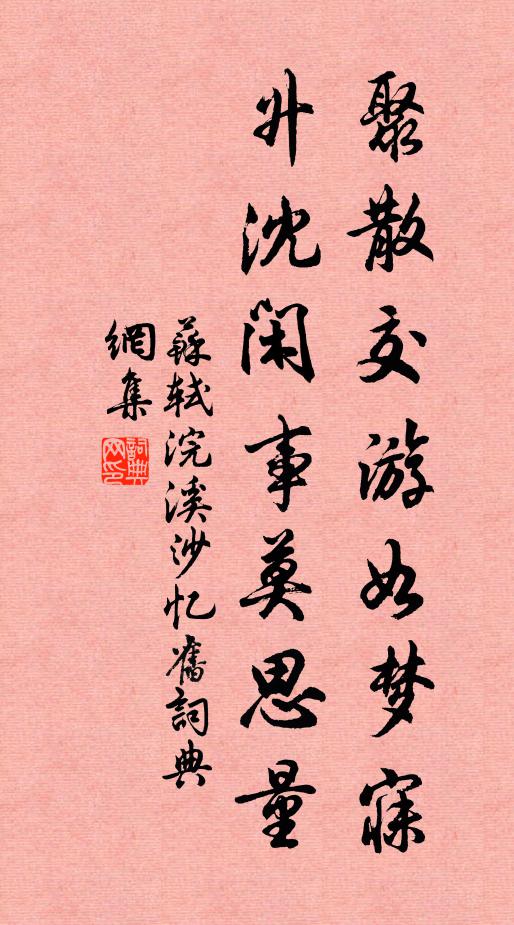 聚散交游如梦寐
升沈闲事莫思量
蘇軾浣溪沙忆舊詞典
網集
詞典网印